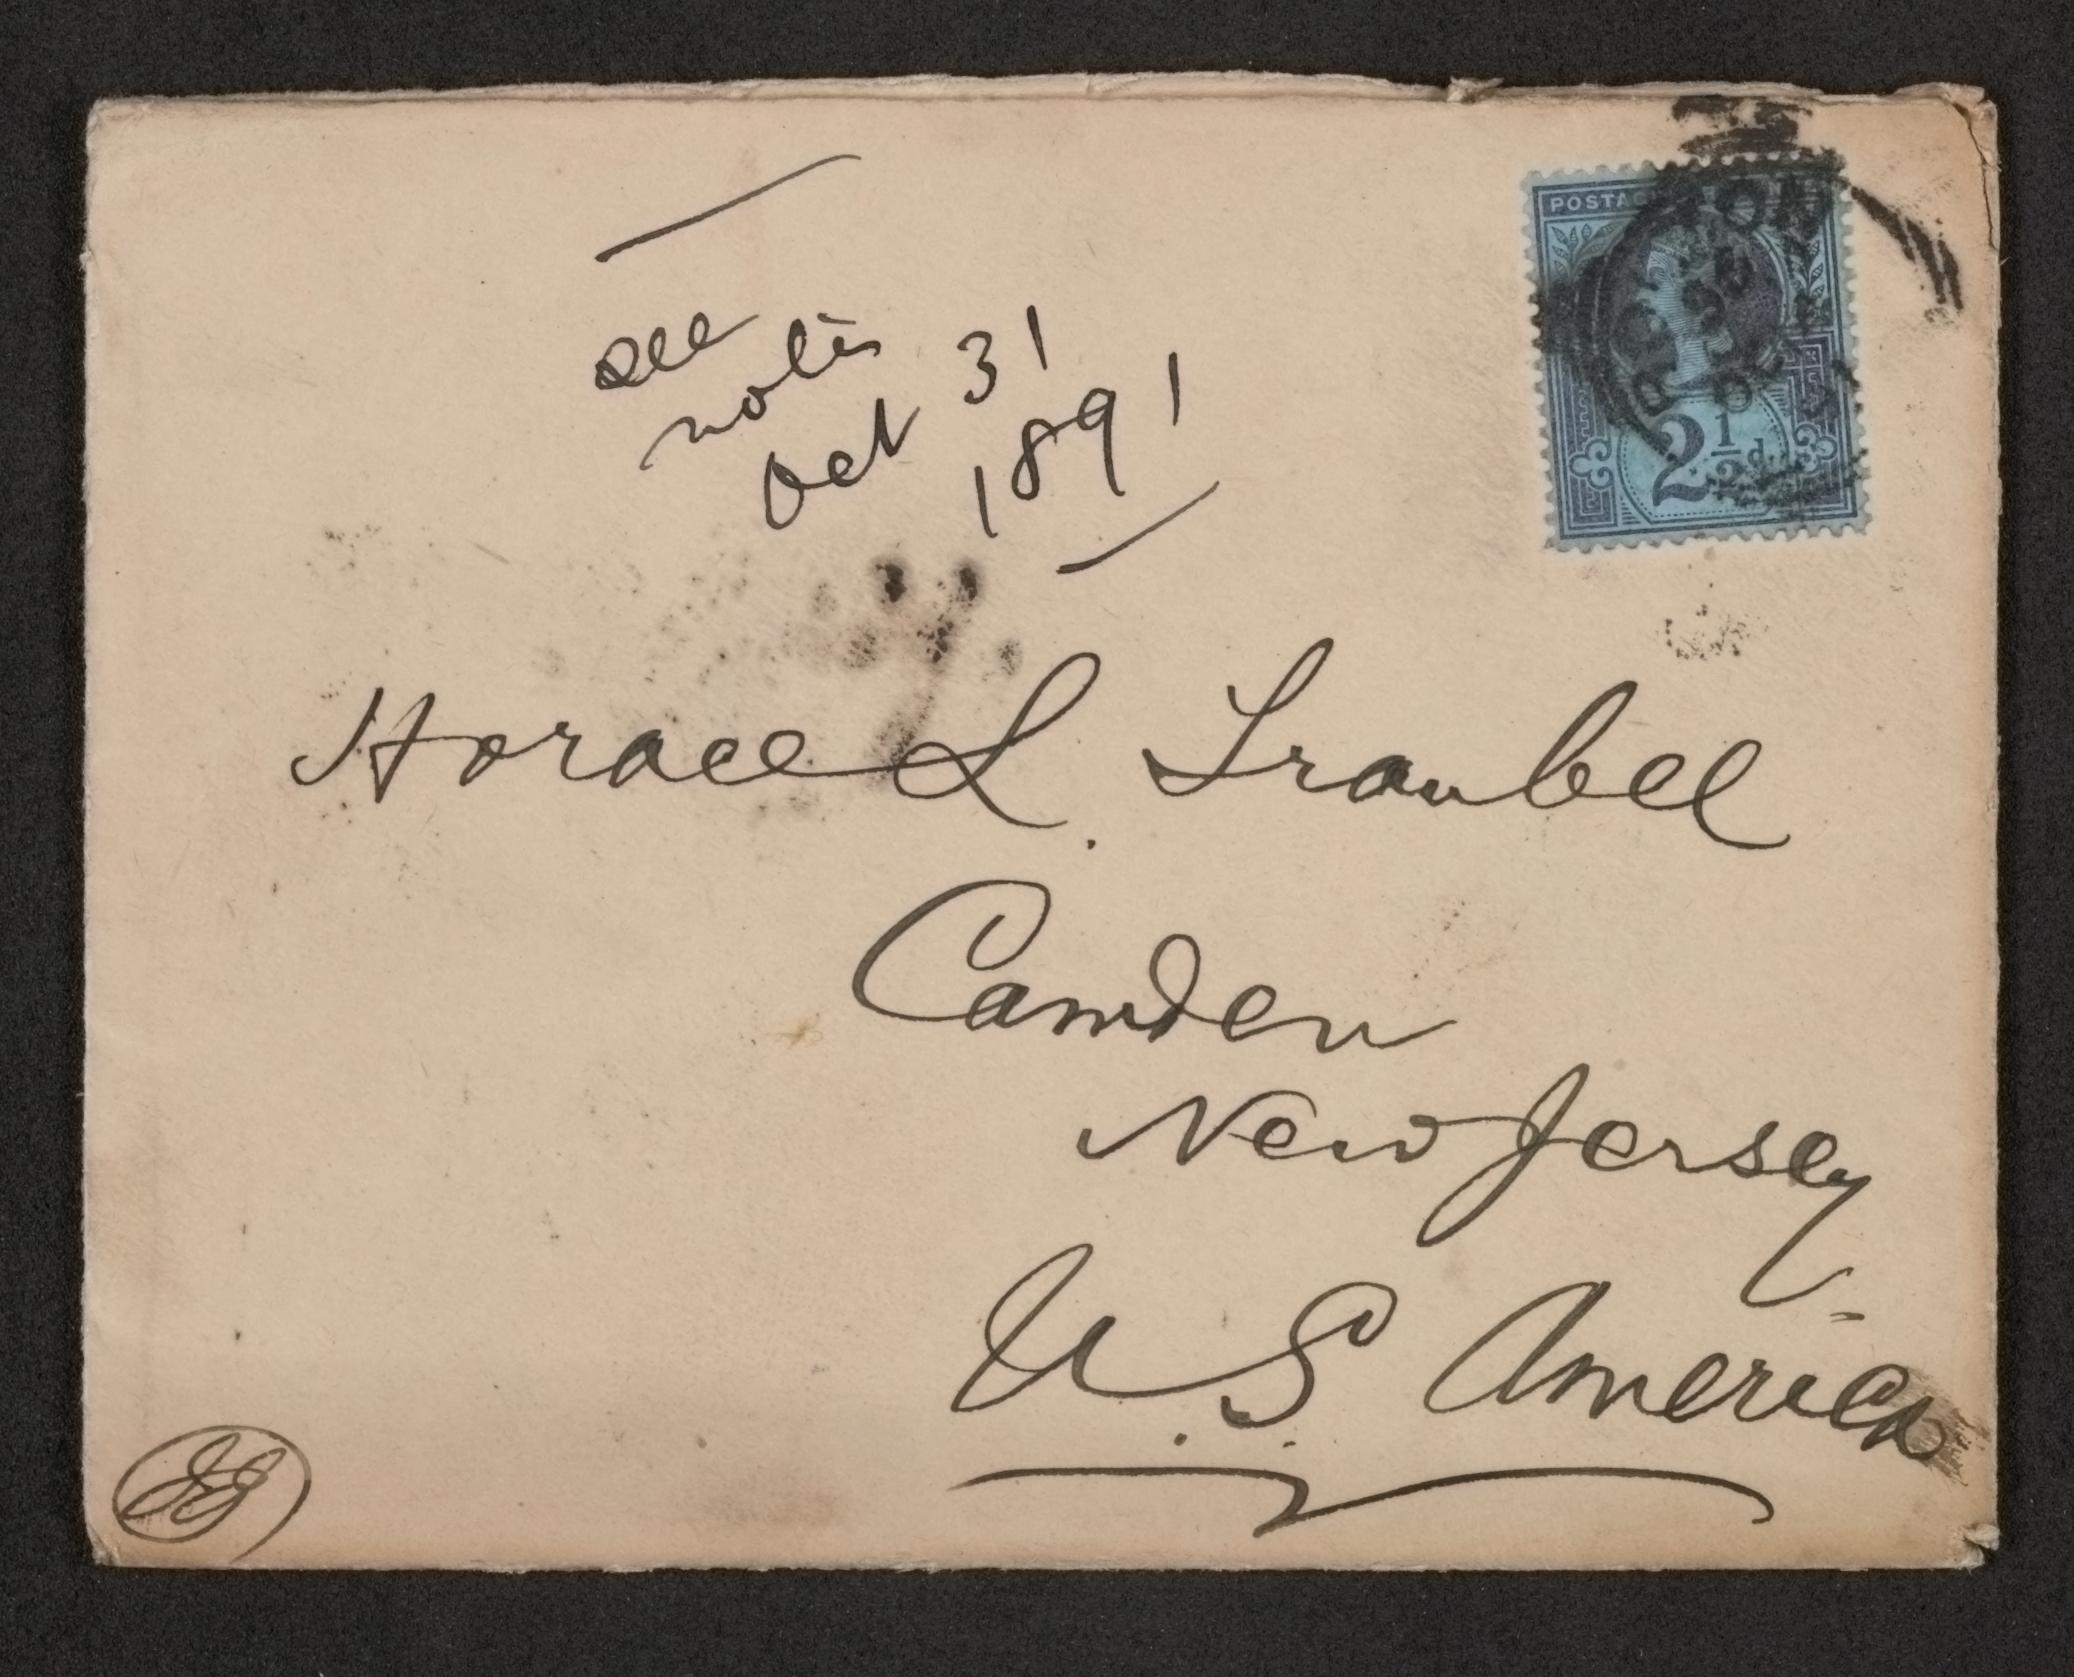 see
notes
Oct 31
1891
POSTAG
2 1/2 d.
Horace L. Traubel
Camden
New Jersey
U.S. America